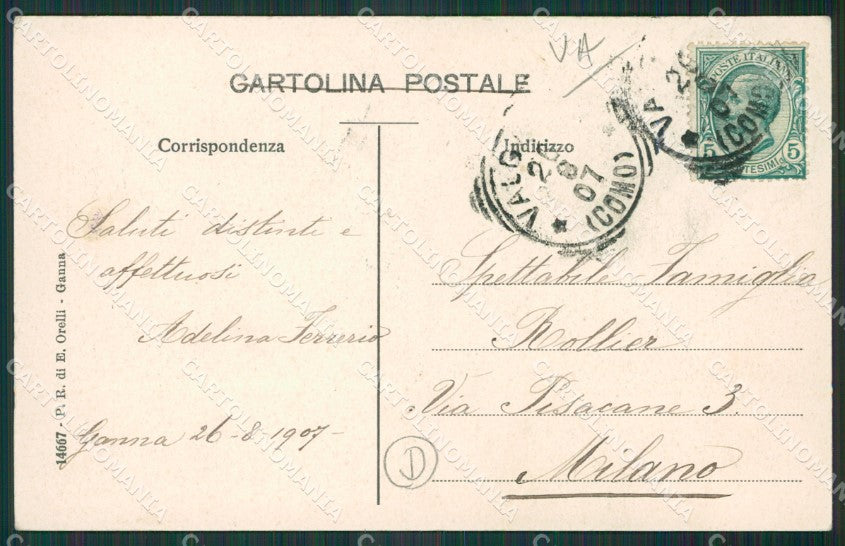 VA
CARTOLINA POSTALE
Corrispondenza
Indirizzo
POSTE ITALIANE
5 5
VALG
26
8
07
(COMO)
VA
26
8
07
(COMO)
Saluti distinti e
affettuosi
Adelina Ferrerio
Ganna 26-8-1907-
Spettabile Famiglia
Rollier
Via Pisacane 3.
Milano
D
14667 - P. R. di E. Orelli - Ganna
CARTOLINOMANIA